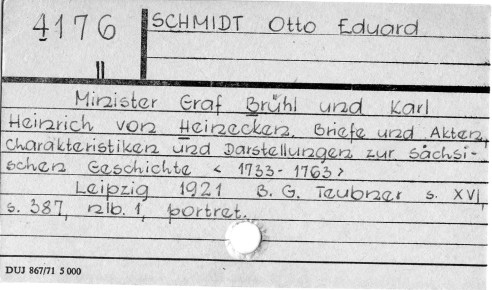 4176
SCHMIDT Otto Eduard
Minister Graf Brühl und Karl
Heinrich von Heinecken. Briefe und Akten,
Charakteristiken und Darstellungen zur Sächsi-
schen Geschichte < 1733-1763 >
Leipzig 1921 B. G. Teubner s. XVI,
s. 387, nlb. 1, portret.
DUJ 867/71 5 000